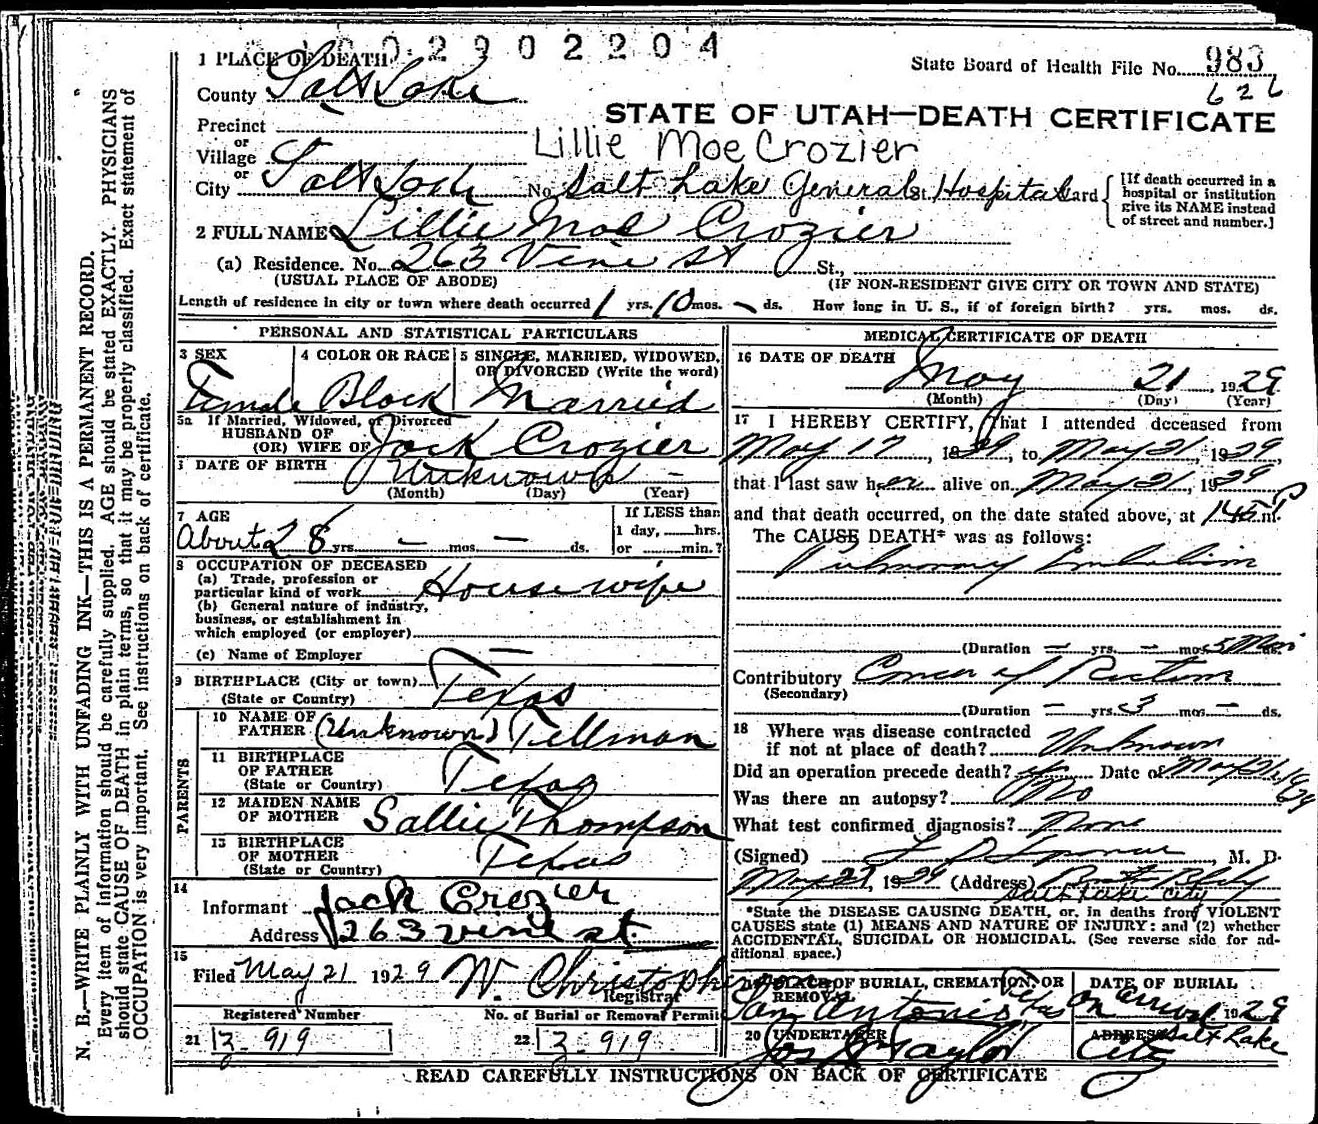 002902204
1 PLACE OF DEATH
State Board of Health File No. 983
County Salt Lake
626
STATE OF UTAH—DEATH CERTIFICATE
Precinct
or
Village
Lillie Moe Crozier
or
City Salt Lake No. Salt Lake General St. Hospital Ward
[If death occurred in a hospital or institution give its NAME instead of street and number.]
2 FULL NAME Lillie Mae Crozier
(a) Residence. No. 263 Vine St St.,
(USUAL PLACE OF ABODE) (IF NON-RESIDENT GIVE CITY OR TOWN AND STATE)
Length of residence in city or town where death occurred 1 yrs. 10 mos. – ds. How long in U. S., if of foreign birth? yrs. mos. ds.
PERSONAL AND STATISTICAL PARTICULARS
3 SEX
Female
4 COLOR OR RACE
Black
5 SINGLE, MARRIED, WIDOWED, OR DIVORCED (Write the word)
Married
5a If Married, Widowed, or Divorced
HUSBAND OF
(OR) WIFE OF Jack Crozier
6 DATE OF BIRTH Unknown –
(Month) (Day) (Year)
7 AGE
About 28 yrs. – mos. – ds.
If LESS than
1 day, hrs.
or min.?
8 OCCUPATION OF DECEASED
(a) Trade, profession or
particular kind of work House wife
(b) General nature of industry,
business, or establishment in
which employed (or employer)
(c) Name of Employer
9 BIRTHPLACE (City or town)
(State or Country) Texas
PARENTS
10 NAME OF
FATHER (Unknown) Tillman
11 BIRTHPLACE
OF FATHER
(State or Country) Texas
12 MAIDEN NAME
OF MOTHER Sallie Thompson
13 BIRTHPLACE
OF MOTHER
(State or Country) Texas
14
Informant Jack Crozier
Address 263 vine st.
15
Filed May 21 1929 W. Christopherson
Registrar
Registered Number No. of Burial or Removal Permit
21 Z-919 22 Z-919
MEDICAL CERTIFICATE OF DEATH
16 DATE OF DEATH
May 21 1929
(Month) (Day) (Year)
17 I HEREBY CERTIFY, that I attended deceased from
May 17, 1929, to May 21, 1929
that I last saw her alive on May 21, 1929
and that death occurred, on the date stated above, at 145 P m.
The CAUSE DEATH* was as follows:
Pulmonary Embolism
(Duration – yrs. – mos. 5 Min ds.
Contributory Cancer of Rectum
(Secondary)
(Duration – yrs. 3 mos. – ds.
18 Where was disease contracted
if not at place of death? Unknown
Did an operation precede death? Date of May 21,
Was there an autopsy? No
What test confirmed diagnosis? None
(Signed) , M. D.
May 1929 (Address)
Salt Lake City
*State the DISEASE CAUSING DEATH, or, in deaths from VIOLENT
CAUSES state (1) MEANS AND NATURE OF INJURY: and (2) whether
ACCIDENTAL, SUICIDAL OR HOMICIDAL. (See reverse side for ad-
ditional space.)
19 PLACE OF BURIAL, CREMATION, OR
REMOVAL
San Antonio Texas
DATE OF BURIAL
On arrival 1929
20 UNDERTAKER
Jos Taylor
ADDRESS Salt Lake
City
READ CAREFULLY INSTRUCTIONS ON BACK OF CERTIFICATE
N. B.—WRITE PLAINLY WITH UNFADING INK—THIS IS A PERMANENT RECORD.
Every item of information should be carefully supplied. AGE should be stated EXACTLY. PHYSICIANS
should state CAUSE OF DEATH in plain terms, so that it may be properly classified. Exact statement of
OCCUPATION is very important. See instructions on back of certificate.